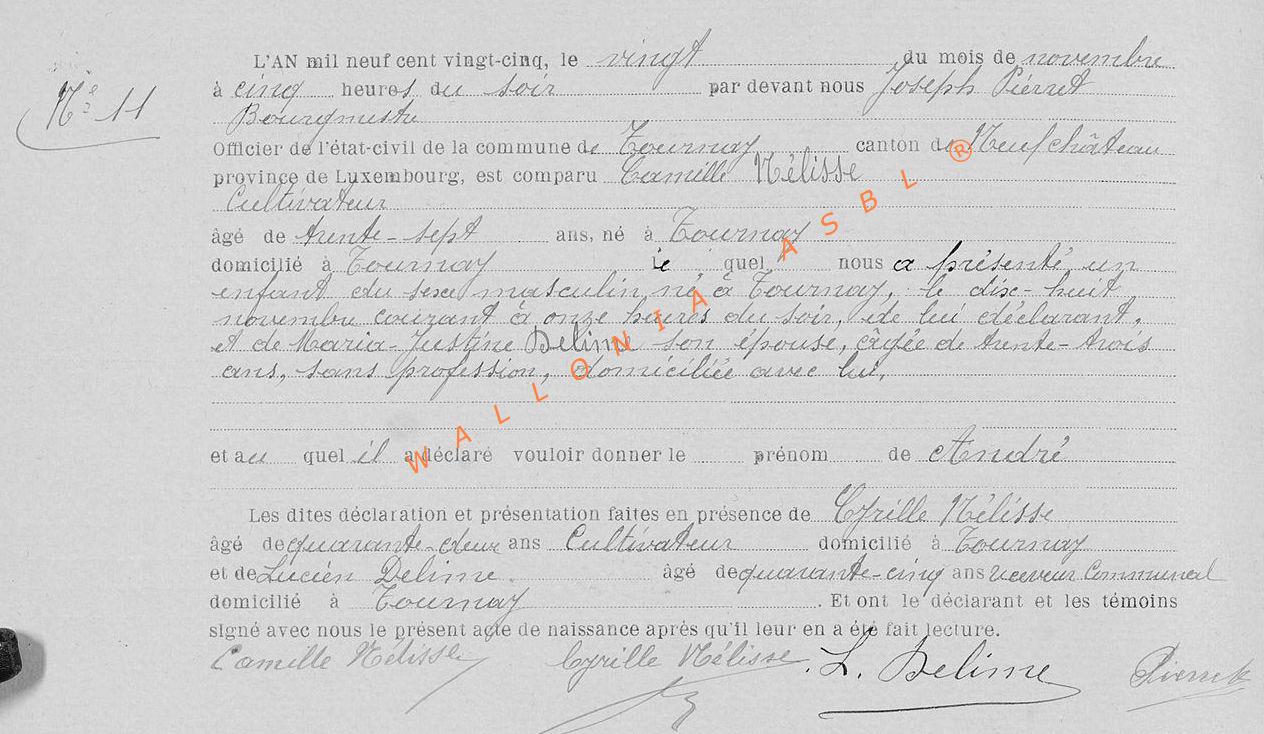 L'AN mil neuf cent vingt-cinq, le vingt du mois de novembre
Nº 11
à cinq heures du soir par devant nous Joseph Pierret
Bourgmestre
Officier de l'état-civil de la commune de Tournay canton de Neufchâteau
province de Luxembourg, est comparu Camille Mélisse
Cultivateur
âgé de trente-sept ans, né à Tournay
domicilié à Tournay le quel nous a présenté un
enfant du sexe masculin, né à Tournay, le dix-huit
novembre courant à onze heures du soir, de lui déclarant,
et de Maria-Justine Delime son épouse, âgée de trente-trois
ans, sans profession, domiciliée avec lui,
et au quel il a déclaré vouloir donner le prénom de André
Les dites déclaration et présentation faites en présence de Cyrille Mélisse
âgé de quarante-deux ans Cultivateur domicilié à Tournay
et de Lucien Delime âgé de quarante-cinq ans receveur Communal
domicilié à Tournay. Et ont le déclarant et les témoins
signé avec nous le présent acte de naissance après qu'il leur en a été fait lecture.
Camille Mélisse Cyrille Mélisse L. Delime Pierret
WALLONIA ASBL ®